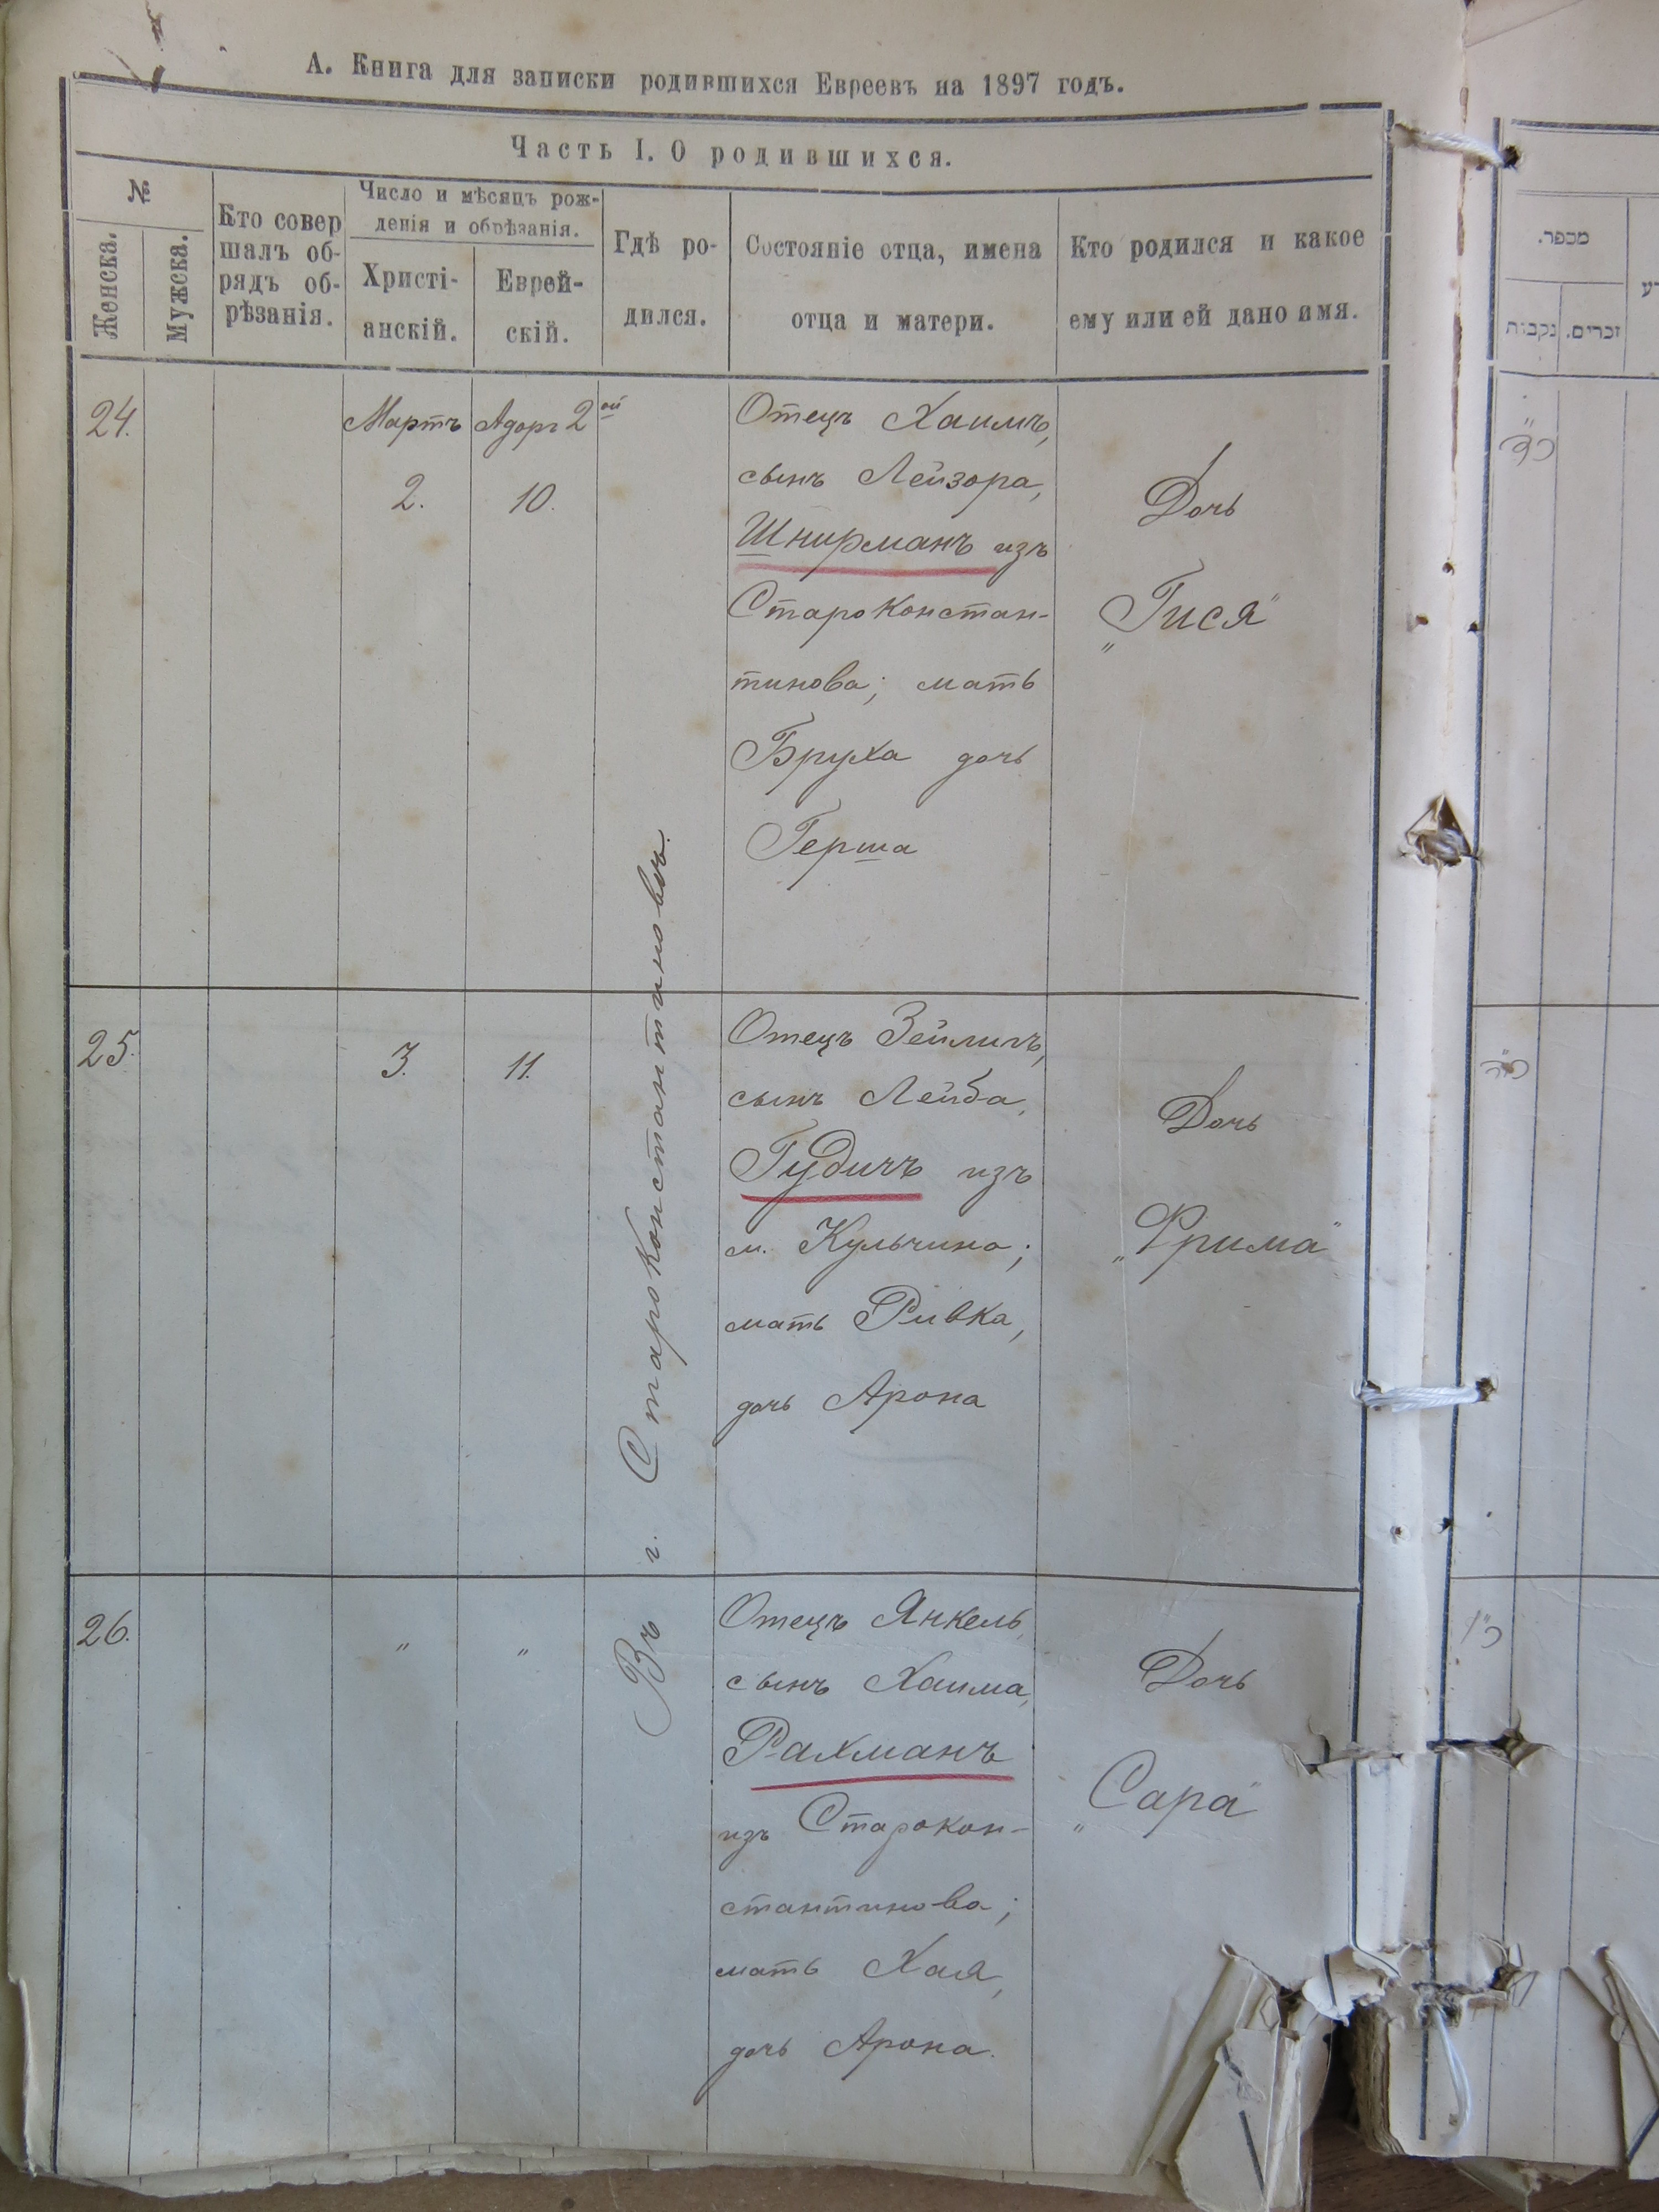 А. Книга для записки родившихся Евреевъ на 1897 годъ.
Часть I. О родившихся.
№
Женска.
Мужска.
Кто совер
шалъ об-
рядъ об-
рѣзанія.
Число и мѣсяцъ рож-
денія и обрѣзанія.
Христі-
анскій.
Еврей-
скій.
Гдѣ ро-
дился.
Состояніе отца, имена
отца и матери.
Кто родился и какое
ему или ей дано имя.
24.
Мартъ
2.
Адоръ 2ой
10.
Отецъ Хаимъ,
сынъ Лейзора,
Шнирманъ изъ
Староконстан-
тинова; мать
Бруха дочь
Герша
Дочь
„Гися"
25.
3.
11.
Отецъ Зейлигъ,
сынъ Лейба,
Гудичъ изъ
м. Кульчина;
мать Ривка,
дочь Арона
Дочь
„Фрима"
26.
"
"
Отецъ Янкель,
сынъ Хаима,
Рахманъ
изъ Старокон-
стантинова;
мать Хая,
дочь Арона.
Дочь
„Сара"
Въ г. Староконстантиновѣ.
מכפר.
נקבות
זכרים.
כ"ד
כ"ה
כ"ו